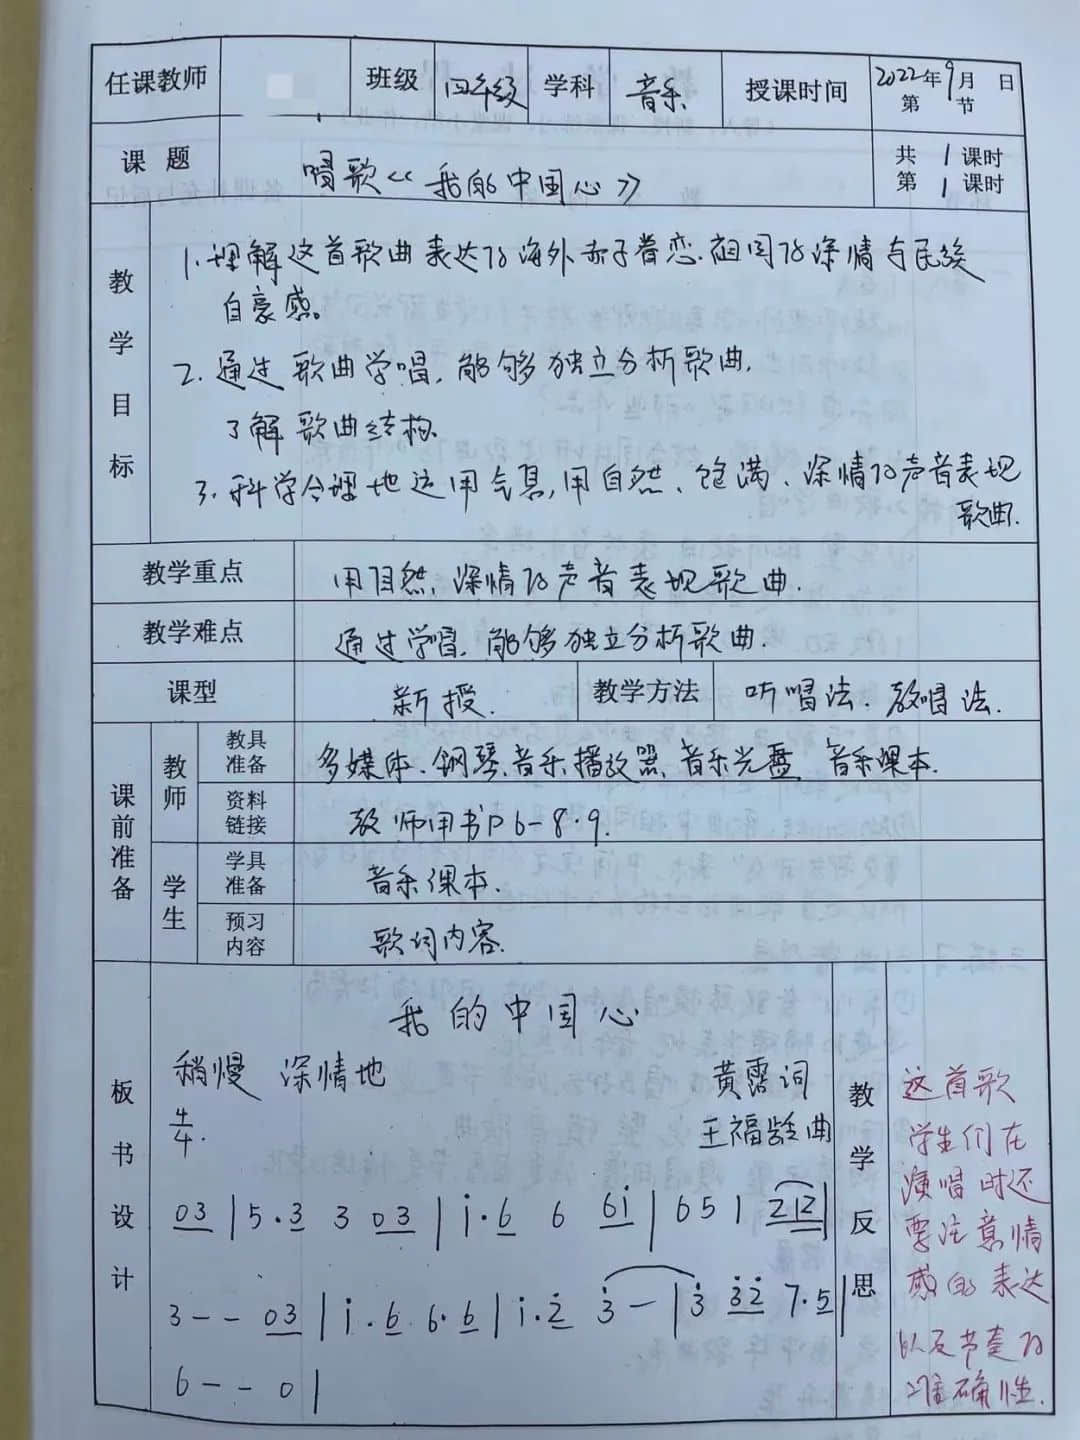 任课教师 班级 四年级 学科 音乐 授课时间 2022年9月 日
第 节
课题 唱歌《我的中国心》 共 1 课时
第 1 课时
教学目标
1. 理解这首歌曲表达的海外赤子眷恋祖国的深情与民族
自豪感。
2. 通过歌曲学唱,能够独立分析歌曲.
了解歌曲结构.
3. 科学合理地运用气息,用自然、饱满、深情的声音表现
歌曲.
教学重点 用自然,深情的声音表现歌曲.
教学难点 通过学唱,能够独立分析歌曲.
课型 新授. 教学方法 听唱法.教唱法.
课前准备
教师
教具准备 多媒体、钢琴、音乐播放器、音乐光盘、音乐课本.
资料链接 教师用书P6-8·9.
学生
学具准备 音乐课本.
预习内容 歌词内容.
板书设计
我的中国心
稍慢 深情地 黄霑词
4/4. 王福龄曲
03 | 5·3 3 03 | i·6 6 6i | 651 212 |
3 - - 03 | i·6 6·6 | i·2 3 - | 3 32 7·5 |
6 - - 0 |
教学反思
这首歌
学生们在
演唱时还
要注意情
感的表达
以及节奏的
准确性.